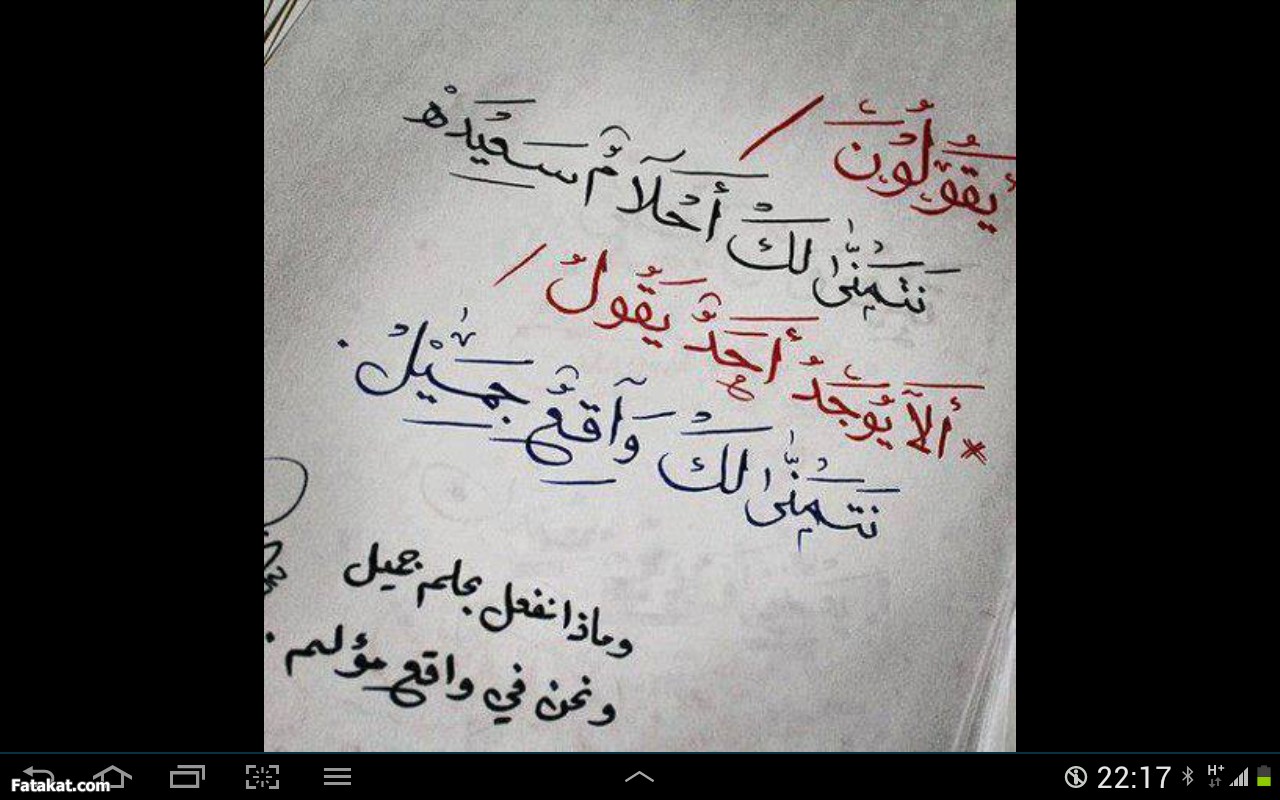 يقولون /
نتمنى لك أحلام سعيده
* ألا يوجد أحد يقول /
نتمنى لك واقع جميل .
وماذا نفعل بحلم جميل
ونحن في واقع مؤلم .
Fatakat.com
H+ 22:17